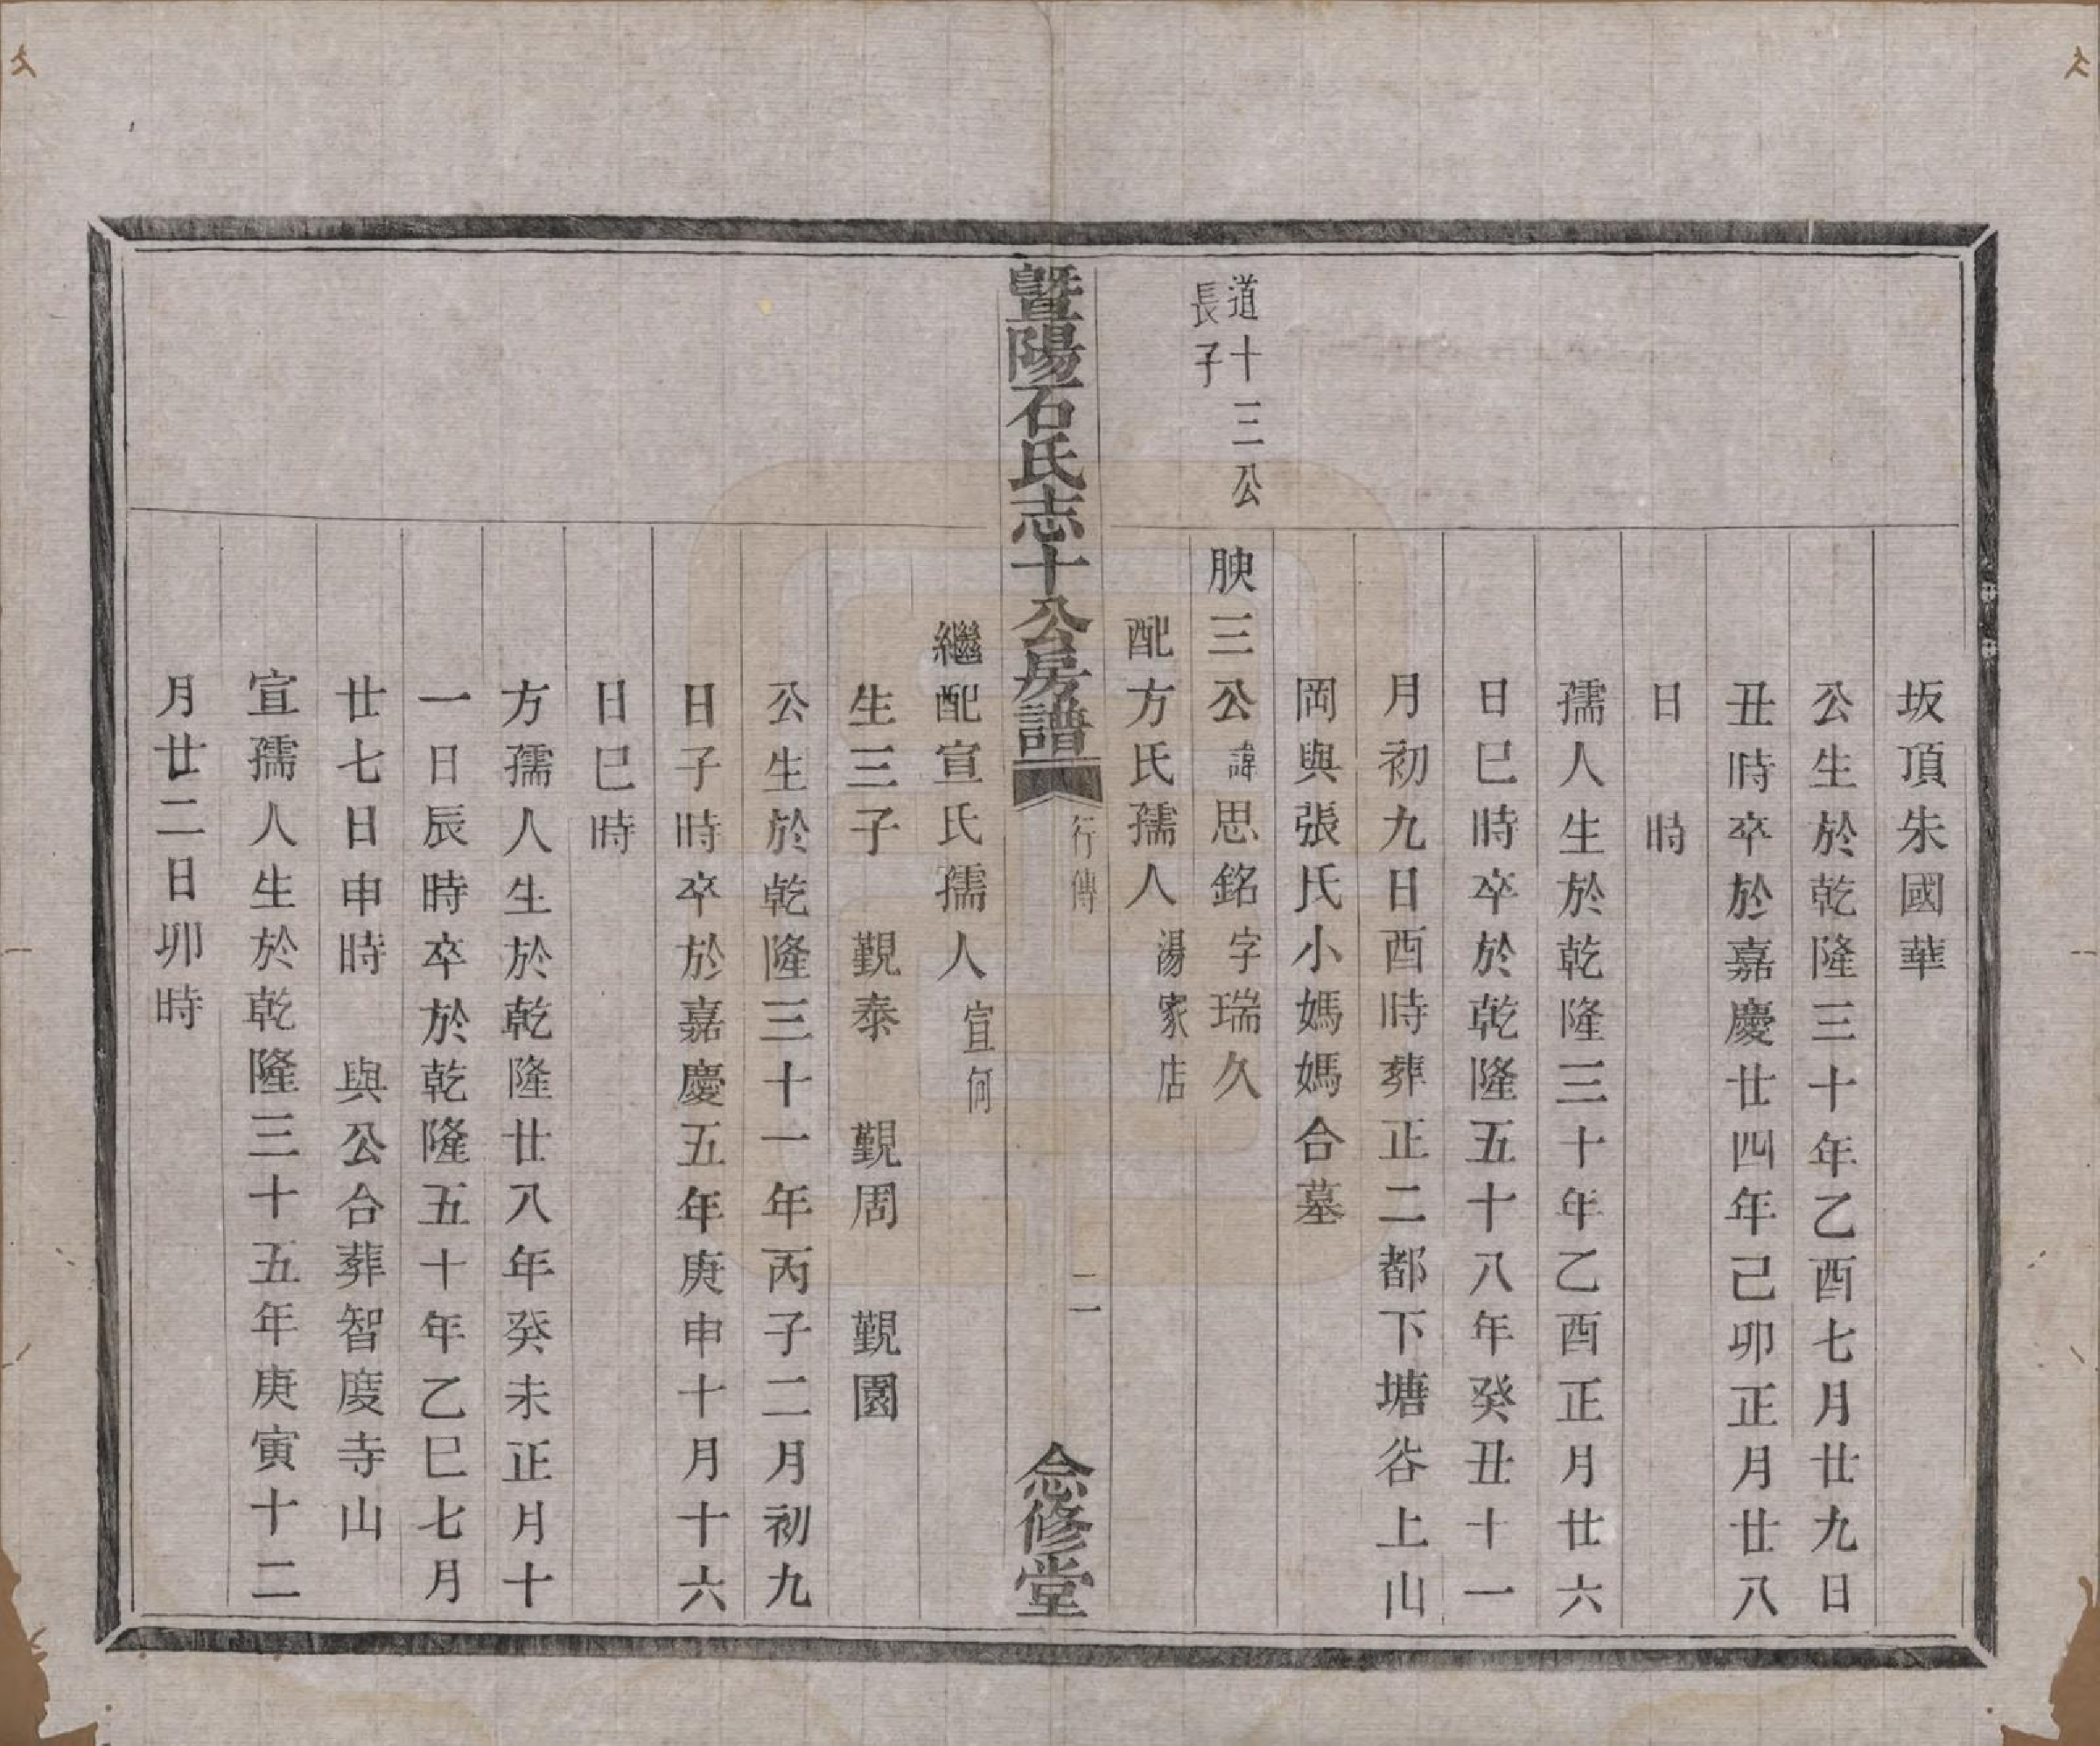 坂頂朱國華
公生於乾隆三十年乙酉七月廿九日
丑時卒於嘉慶廿四年己卯正月廿八
日　時
孺人生於乾隆三十年乙酉正月廿六
日巳時卒於乾隆五十八年癸丑十一
月初九日酉時葬正二都下塘谷上山
岡與張氏小媽媽合墓
道十三公
長子
腴三公諱思銘字瑞久
配方氏孺人湯家店
暨陽石氏志十公房譜
行傳
二
念修堂
繼配宣氏孺人宣何
生三子　覲泰　覲周　覲園
公生於乾隆三十一年丙子二月初九
日子時卒於嘉慶五年庚申十月十六
日巳時
方孺人生於乾隆廿八年癸未正月十
一日辰時卒於乾隆五十年乙巳七月
廿七日申時　與公合葬智度寺山
宣孺人生於乾隆三十五年庚寅十二
月廿二日卯時